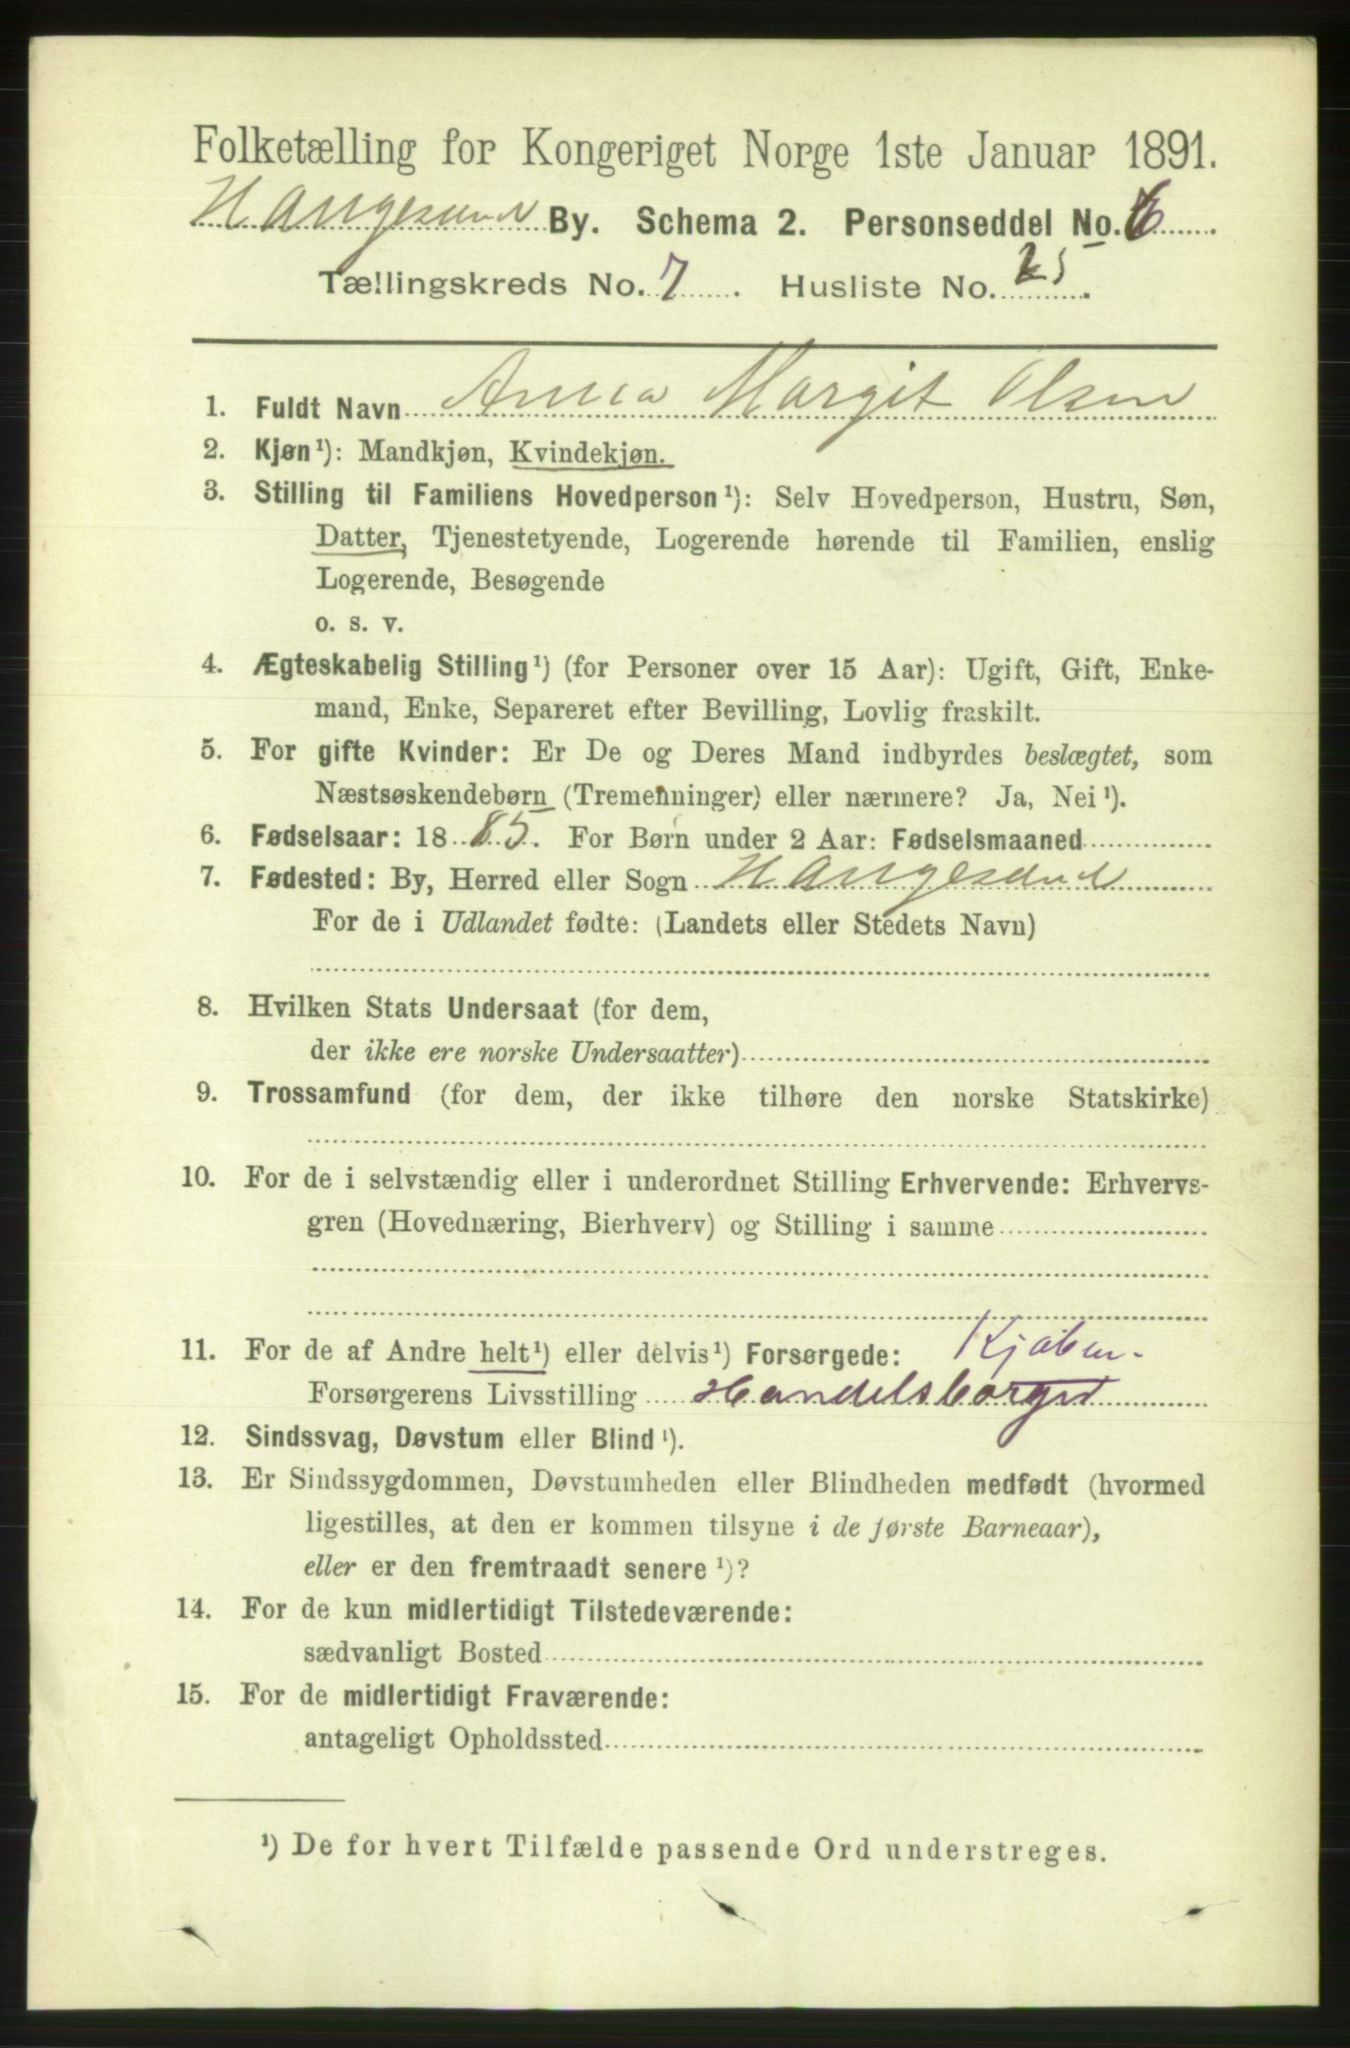 Folketælling for Kongeriget Norge 1ste Januar 1891.
Haugesund By. Schema 2. Personseddel No. 6
Tællingskreds No. 7. Husliste No. 25.
1. Fuldt Navn Anna Margit Olsen
2. Kjøn¹): Mandkjøn, Kvindekjøn.
3. Stilling til Familiens Hovedperson¹): Selv Hovedperson, Hustru, Søn,
Datter, Tjenestetyende, Logerende hørende til Familien, enslig
Logerende, Besøgende
o. s. v.
4. Ægteskabelig Stilling¹) (for Personer over 15 Aar): Ugift, Gift, Enke-
mand, Enke, Separeret efter Bevilling, Lovlig fraskilt.
5. For gifte Kvinder: Er De og Deres Mand indbyrdes beslægtet, som
Næstsøskendebørn (Tremenninger) eller nærmere? Ja, Nei¹).
6. Fødselsaar: 1885. For Børn under 2 Aar: Fødselsmaaned
7. Fødested: By, Herred eller Sogn Haugesund
For de i Udlandet fødte: (Landets eller Stedets Navn)
8. Hvilken Stats Undersaat (for dem,
der ikke ere norske Undersaatter)
9. Trossamfund (for dem, der ikke tilhøre den norske Statskirke)
10. For de i selvstændig eller i underordnet Stilling Erhvervende: Erhvervs-
gren (Hovednæring, Bierhverv) og Stilling i samme
11. For de af Andre helt¹) eller delvis¹) Forsørgede: Kjøben-
Forsørgerens Livsstilling Handelsborger
12. Sindssvag, Døvstum eller Blind¹).
13. Er Sindssygdommen, Døvstumheden eller Blindheden medfødt (hvormed
ligestilles, at den er kommen tilsyne i de første Barneaar),
eller er den fremtraadt senere¹)?
14. For de kun midlertidigt Tilstedeværende:
sædvanligt Bosted
15. For de midlertidigt Fraværende:
antageligt Opholdssted
¹) De for hvert Tilfælde passende Ord understreges.